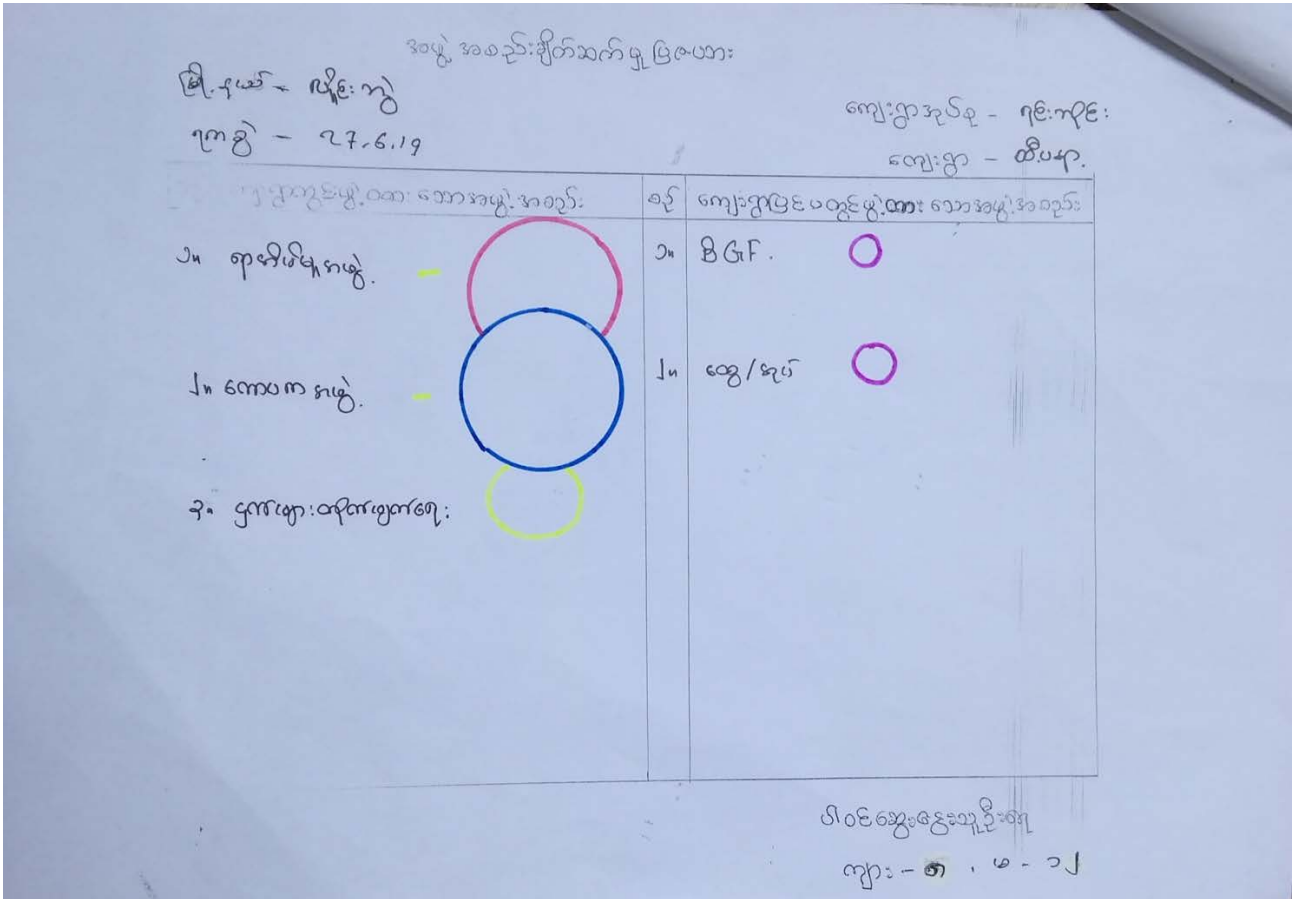 အဖွဲ့အစည်းချိတ်ဆက်မှုပြဇယား
မြို့နယ် - လှိုင်းဘွဲ
ရက်စွဲ - 27.6.19
ကျေးရွာအုပ်စု - ရင်းကိုင်း
ကျေးရွာ -
ကျေးရွာတွင်ဖွဲ့ထားသောအဖွဲ့အစည်း
စဉ် ကျေးရွာပြင်ပတွင်ဖွဲ့ထားသောအဖွဲ့အစည်း
၁။ ရာအိမ်မှူးအဖွဲ့ -
၁။ BGF.
၂။ ကောပကအဖွဲ့ -
၂။ ထွေ/အုပ်
၃။ ငှက်ဖျားတိုက်ဖျက်ရေး
ပါဝင်ဆွေးနွေးသူဦးရေ
ကျား - ၈ ၊ မ - ၁၂